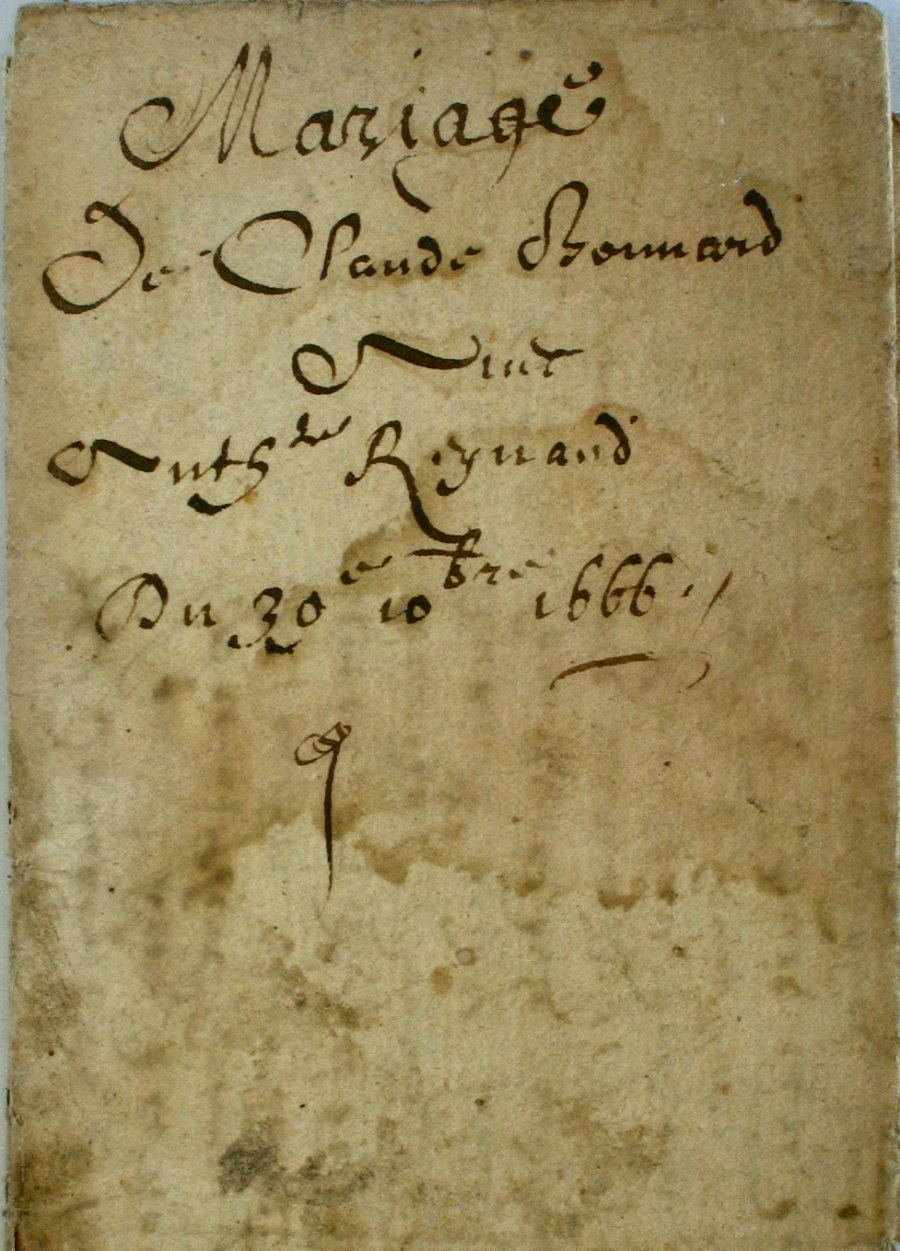 Mariage
De Claude Bonnard
Avec
Anth.te Reynaud
Du 30e 10bre 1666./